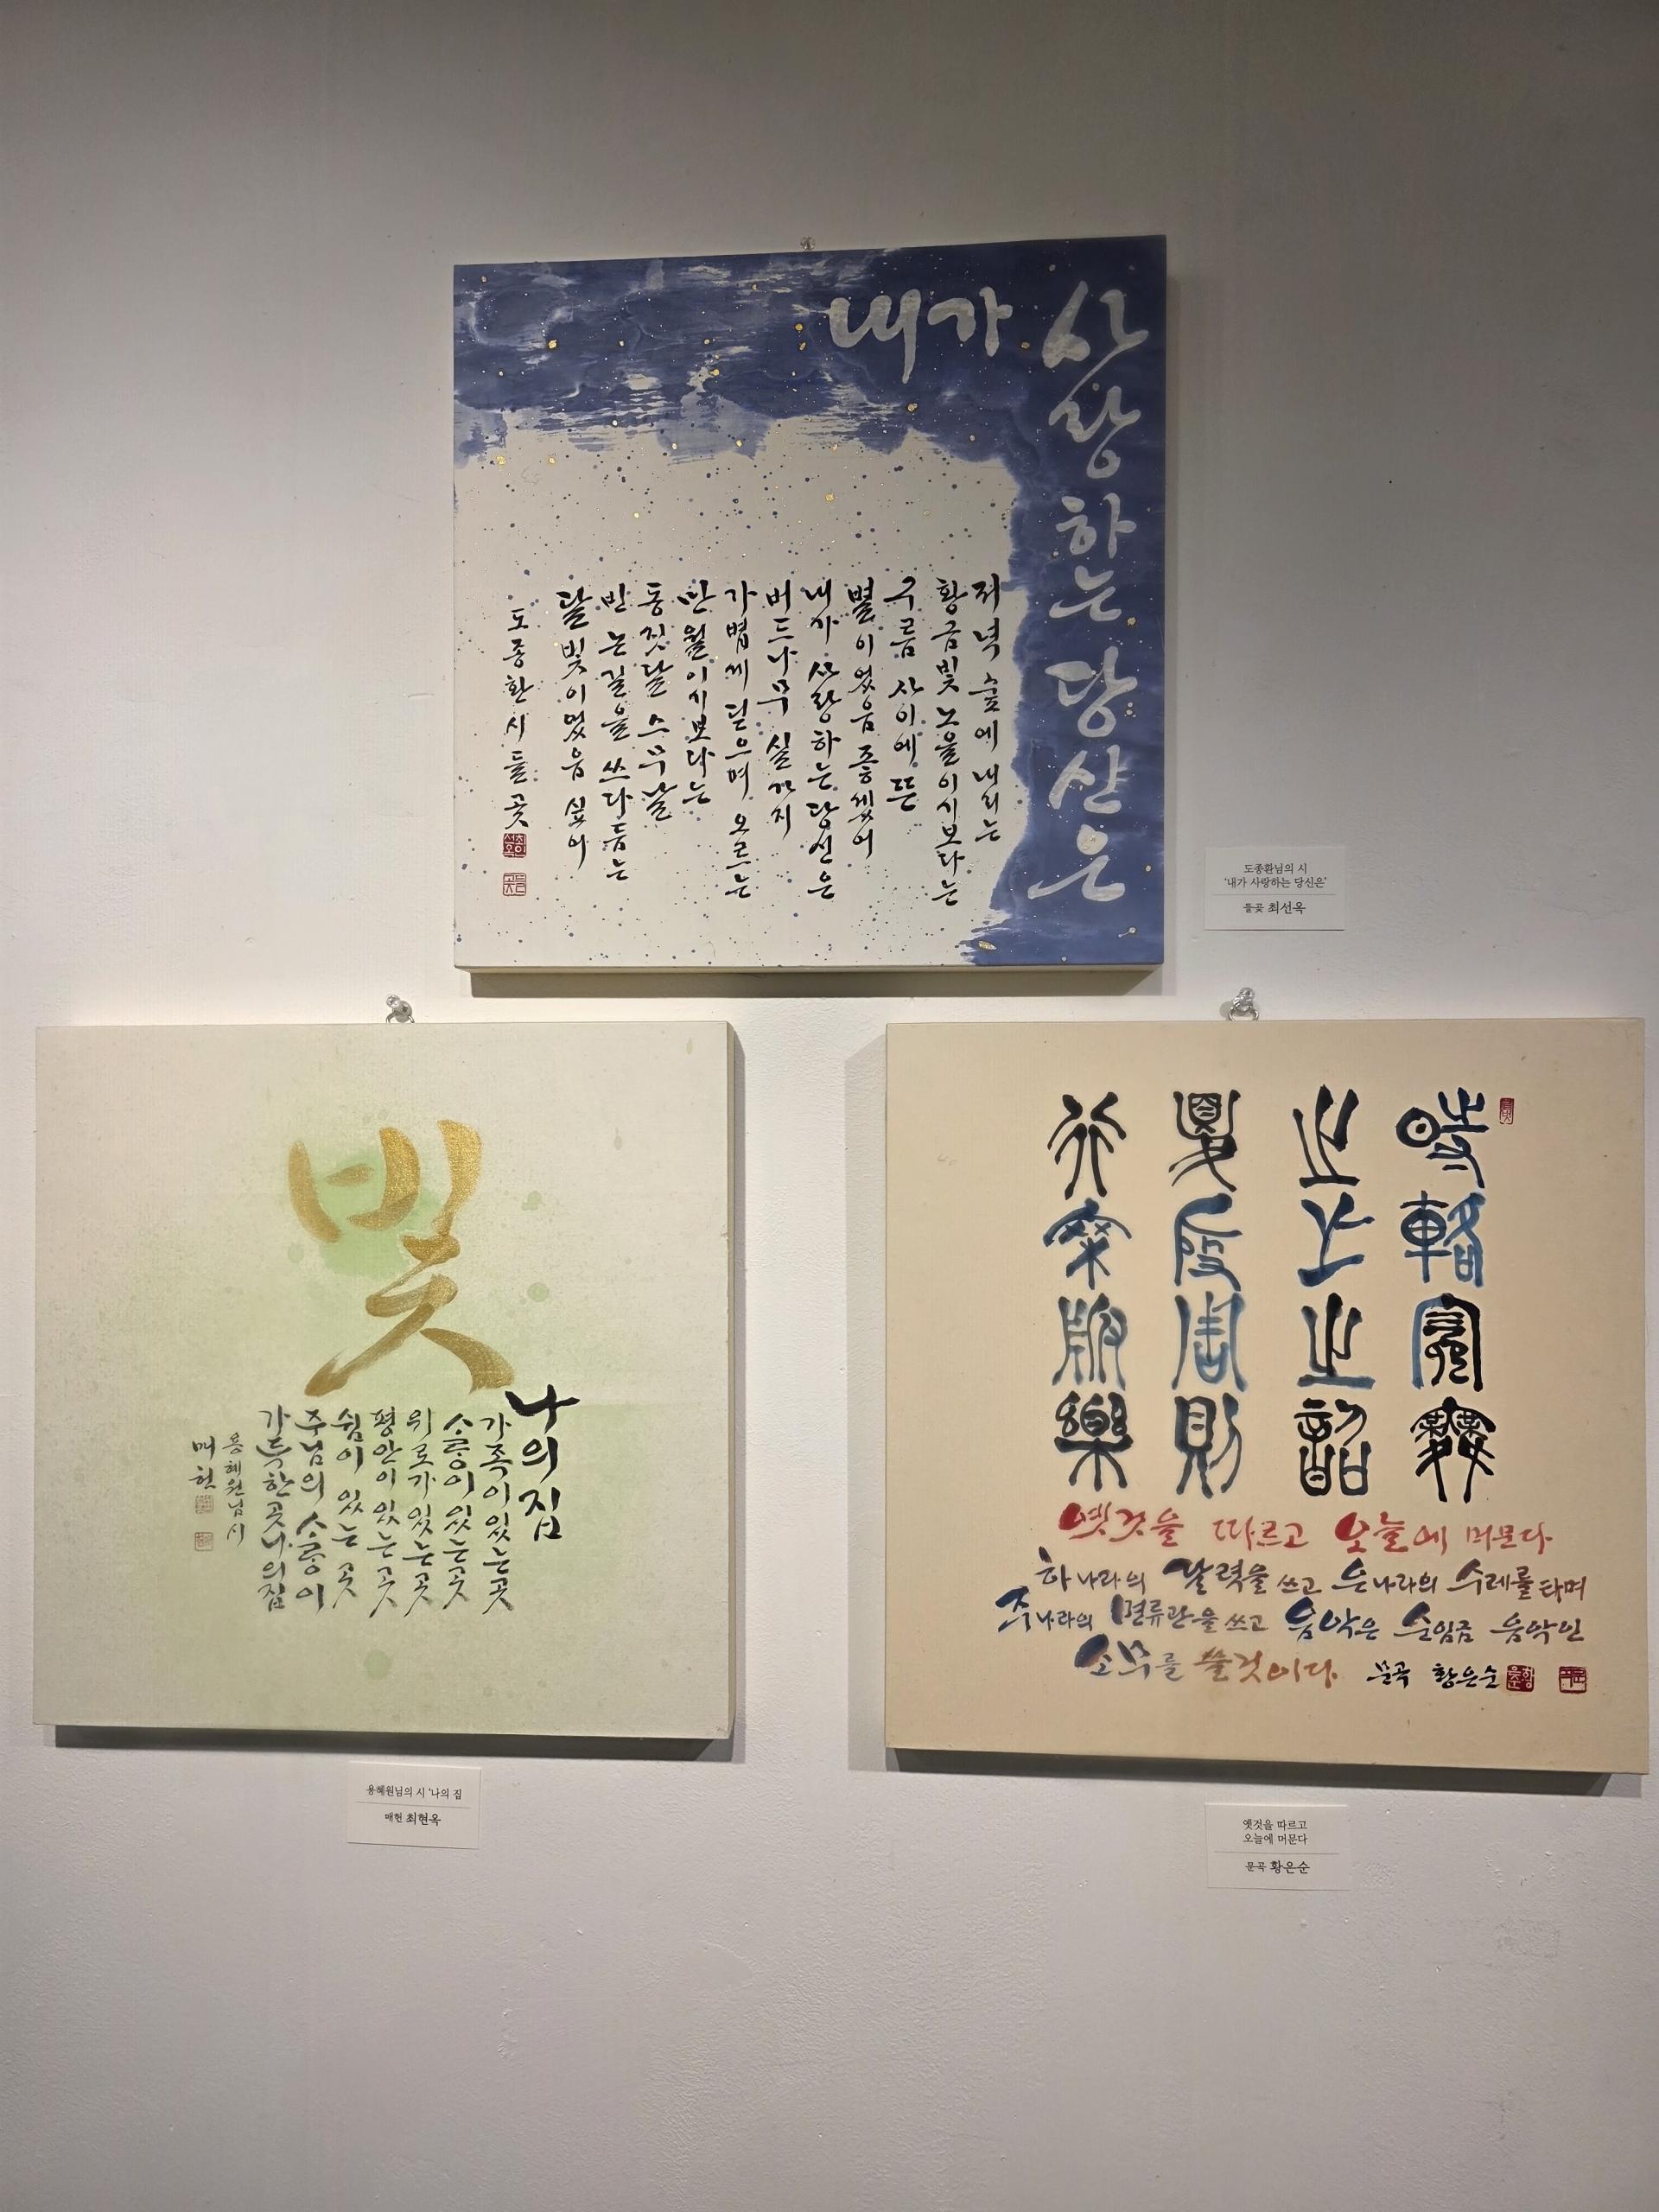 내가
사랑하는 당신은
저녁 숲에 내리는
황금빛 노을이시보다는
구름 사이에 뜬
별이었음 좋겠어
내가 사랑하는 당신은
버드나무 실가지
가볍게 딛으며 오르는
만월이시보다는
동짓달 스무날
빈 논길을 쓰다듬는
달빛이었음 싶어
도종환 시 들곶
도종환님의 시
‘내가 사랑하는 당신은’
들곶 최선옥
빛
나의 집
가족이 있는 곳
사랑이 있는 곳
위로가 있는 곳
평안이 있는 곳
쉼이 있는 곳
주님의 사랑이
가득한 곳 나의 집
용혜원님 시
매헌
용혜원님의 시 ‘나의 집
매헌 최현옥
時輅冕舞
之之之韶
夏殷周則
行乘服樂
옛것을 따르고 오늘에 머문다
하나라의 달력을 쓰고 은나라의 수레를 타며
주나라의 면류관을 쓰고 음악은 순임금 음악인
소무를 쓸것이다 문곡 황은순
옛것을 따르고
오늘에 머문다
문곡 황은순